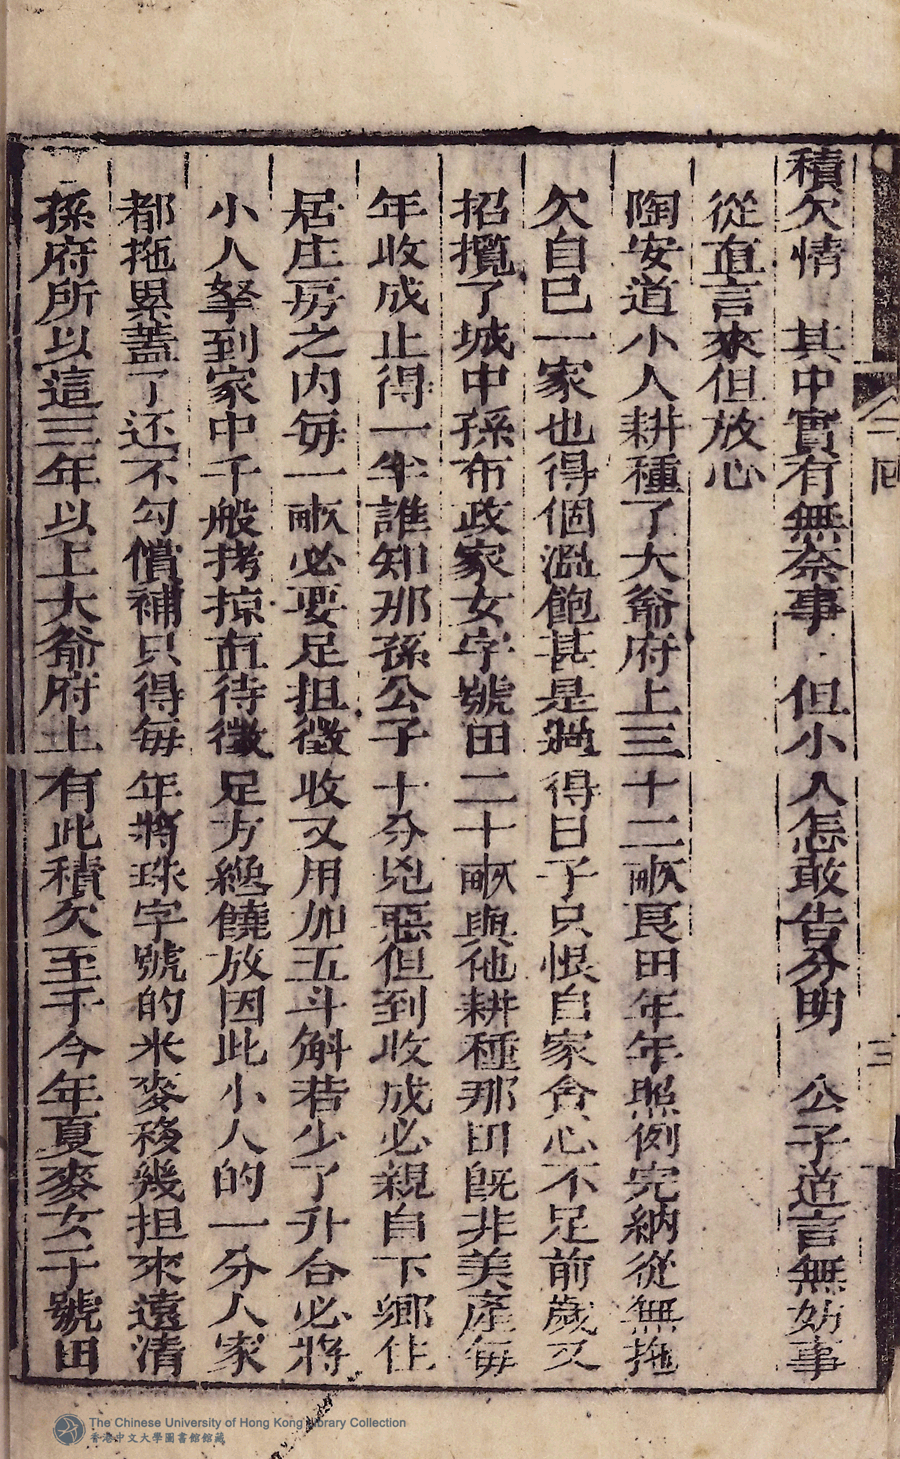 積欠情 其中實有無奈事 但小人怎敢告分明 公子道言無妨事
從直言來但放心
陶安道小人耕種了大爺府上三十二畝良田年年照例完納從無拖
欠自已一家也得個溫飽甚是過得日子只恨自家貪心不足前歲又
招攬了城中孫布政家女字號田二十畝與他耕種那田既非美產每
年收成止得一半誰知那孫公子十分兇惡但到收成必親自下鄉住
居庄房之内每一畝必要足担徵收又用加五斗斛若少了升合必將
小人拏到家中千般拷掠直待徵足方纔饒放因此小人的一分人家
都拖累盡了还不勾償補只得每年將珠字號的米麥移幾担來遠清
孫府所以這三年以上大爺府上有此積欠至于今年夏麥女子號田
二回
三
The Chinese University of Hong Kong Library Collection
香港中文大學圖書館館藏